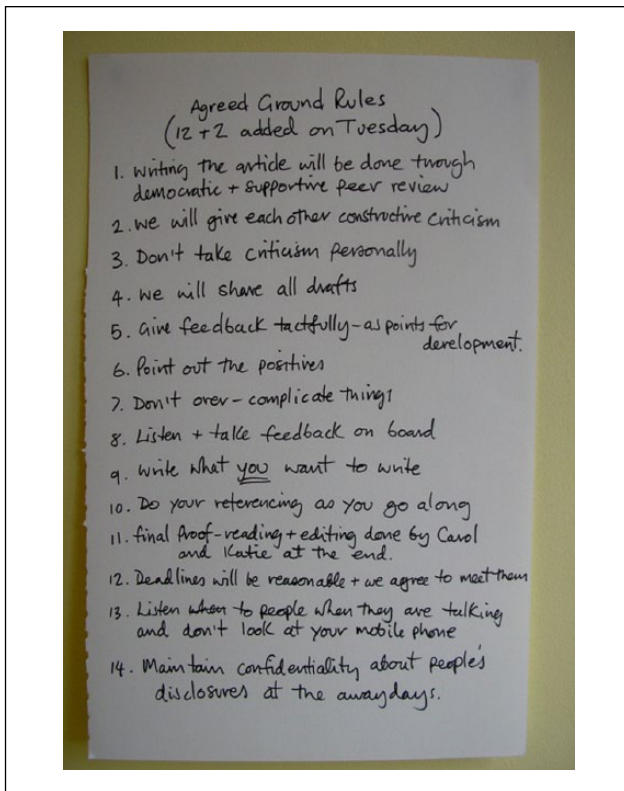 Agreed Ground Rules
(12 + 2 added on Tuesday)
1. writing the article will be done trough
democratic + supportive peer review
2. we will give each other constructive criticism
3. Don't take criticism personally
4. we will share all drafts
5. Give feedback tactfully - as points for
development.
6. Point out the positives
7. Don't over-complicate things
8. Listen + take feedback on board
9. write what you want to write
10. Do your referencing as you go along
11. final proof-reading + editing done by Carol
and Katie at the end.
12. Deadlines will be reasonable + we agree to meet them
13. Listen when to people when they are talking
and don't look at your mobile phone
14. Maintain confidentiality about people's
disclosures at the awaydays.